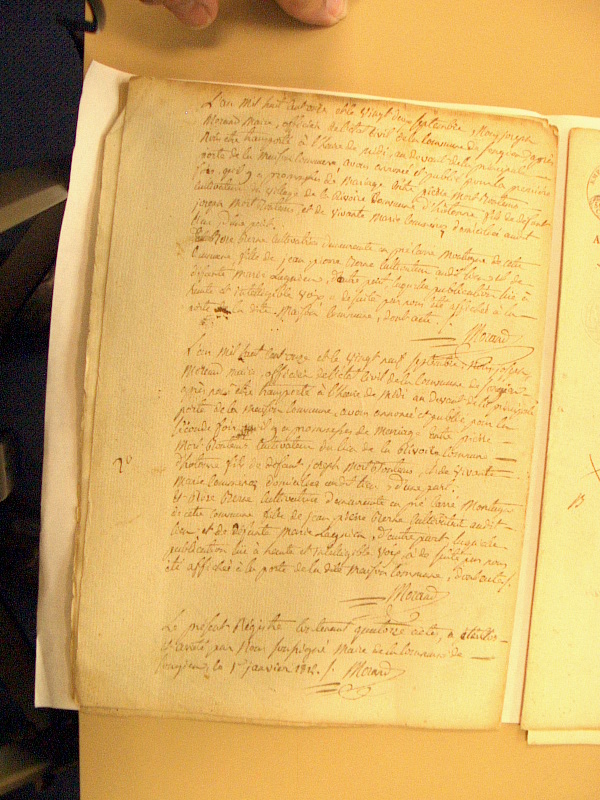 L'an mil huit cent onze et le vingt deux septembre, Nous joseph
Morand Maire, officier de l'état civil de la Commune de
Nous être transporté à l'heure de midi, au devant de la principale
porte de la Maison Commune, avons annoncé et publié pour la première
fois, qu'il y a promesse de Mariage entre pierre Mort
Cultivateur du village de la Rivoire Commune d'hotonne, fils de defunt
joseph Mort et de vivante Marie domiciliés audit
lieu d'une part.
Et Rose Berne Cultivatrice demeurante en pré Carre Montagne de cette
Commune fille de jean pierre Berne Cultivateur audit lieu et de
défunte Marie d'autre part, laquelle publication lue à
haute et intelligible voix, a de suite par nous été affichée à la
porte de la dite Maison Commune, dont acte.
Morand
L'an mil huit cent onze et le vingt neuf septembre, Nous joseph
Morand maire, officier de l'état civil de la Commune de
après nous être transporté à l'heure de midi au devant de la principale
porte de la maison Commune, avons annoncé et publié pour la
seconde fois qu'il y a promesse de Mariage entre pierre
Mort Cultivateur du lieu de la Rivoire Commune
d'hotonne fils de defunt joseph Mort et de vivante
Marie domiciliés audit lieu, d'une part.
2°
Et Rose Berne Cultivatrice demeurante en pré Carre Montagne
de cette Commune fille de jean pierre Berne Cultivateur audit
lieu, et de défunte Marie d'autre part laquelle
publication lue à haute et intelligible voix, a de suite par nous
été affichée à la porte de la dite Maison Commune, dont acte.
Morand
Le présent Régistre contenant quatorze actes, a été clos
et arrêté par Nous soussigné Maire de la Commune de
le 1er janvier 1812. Morand